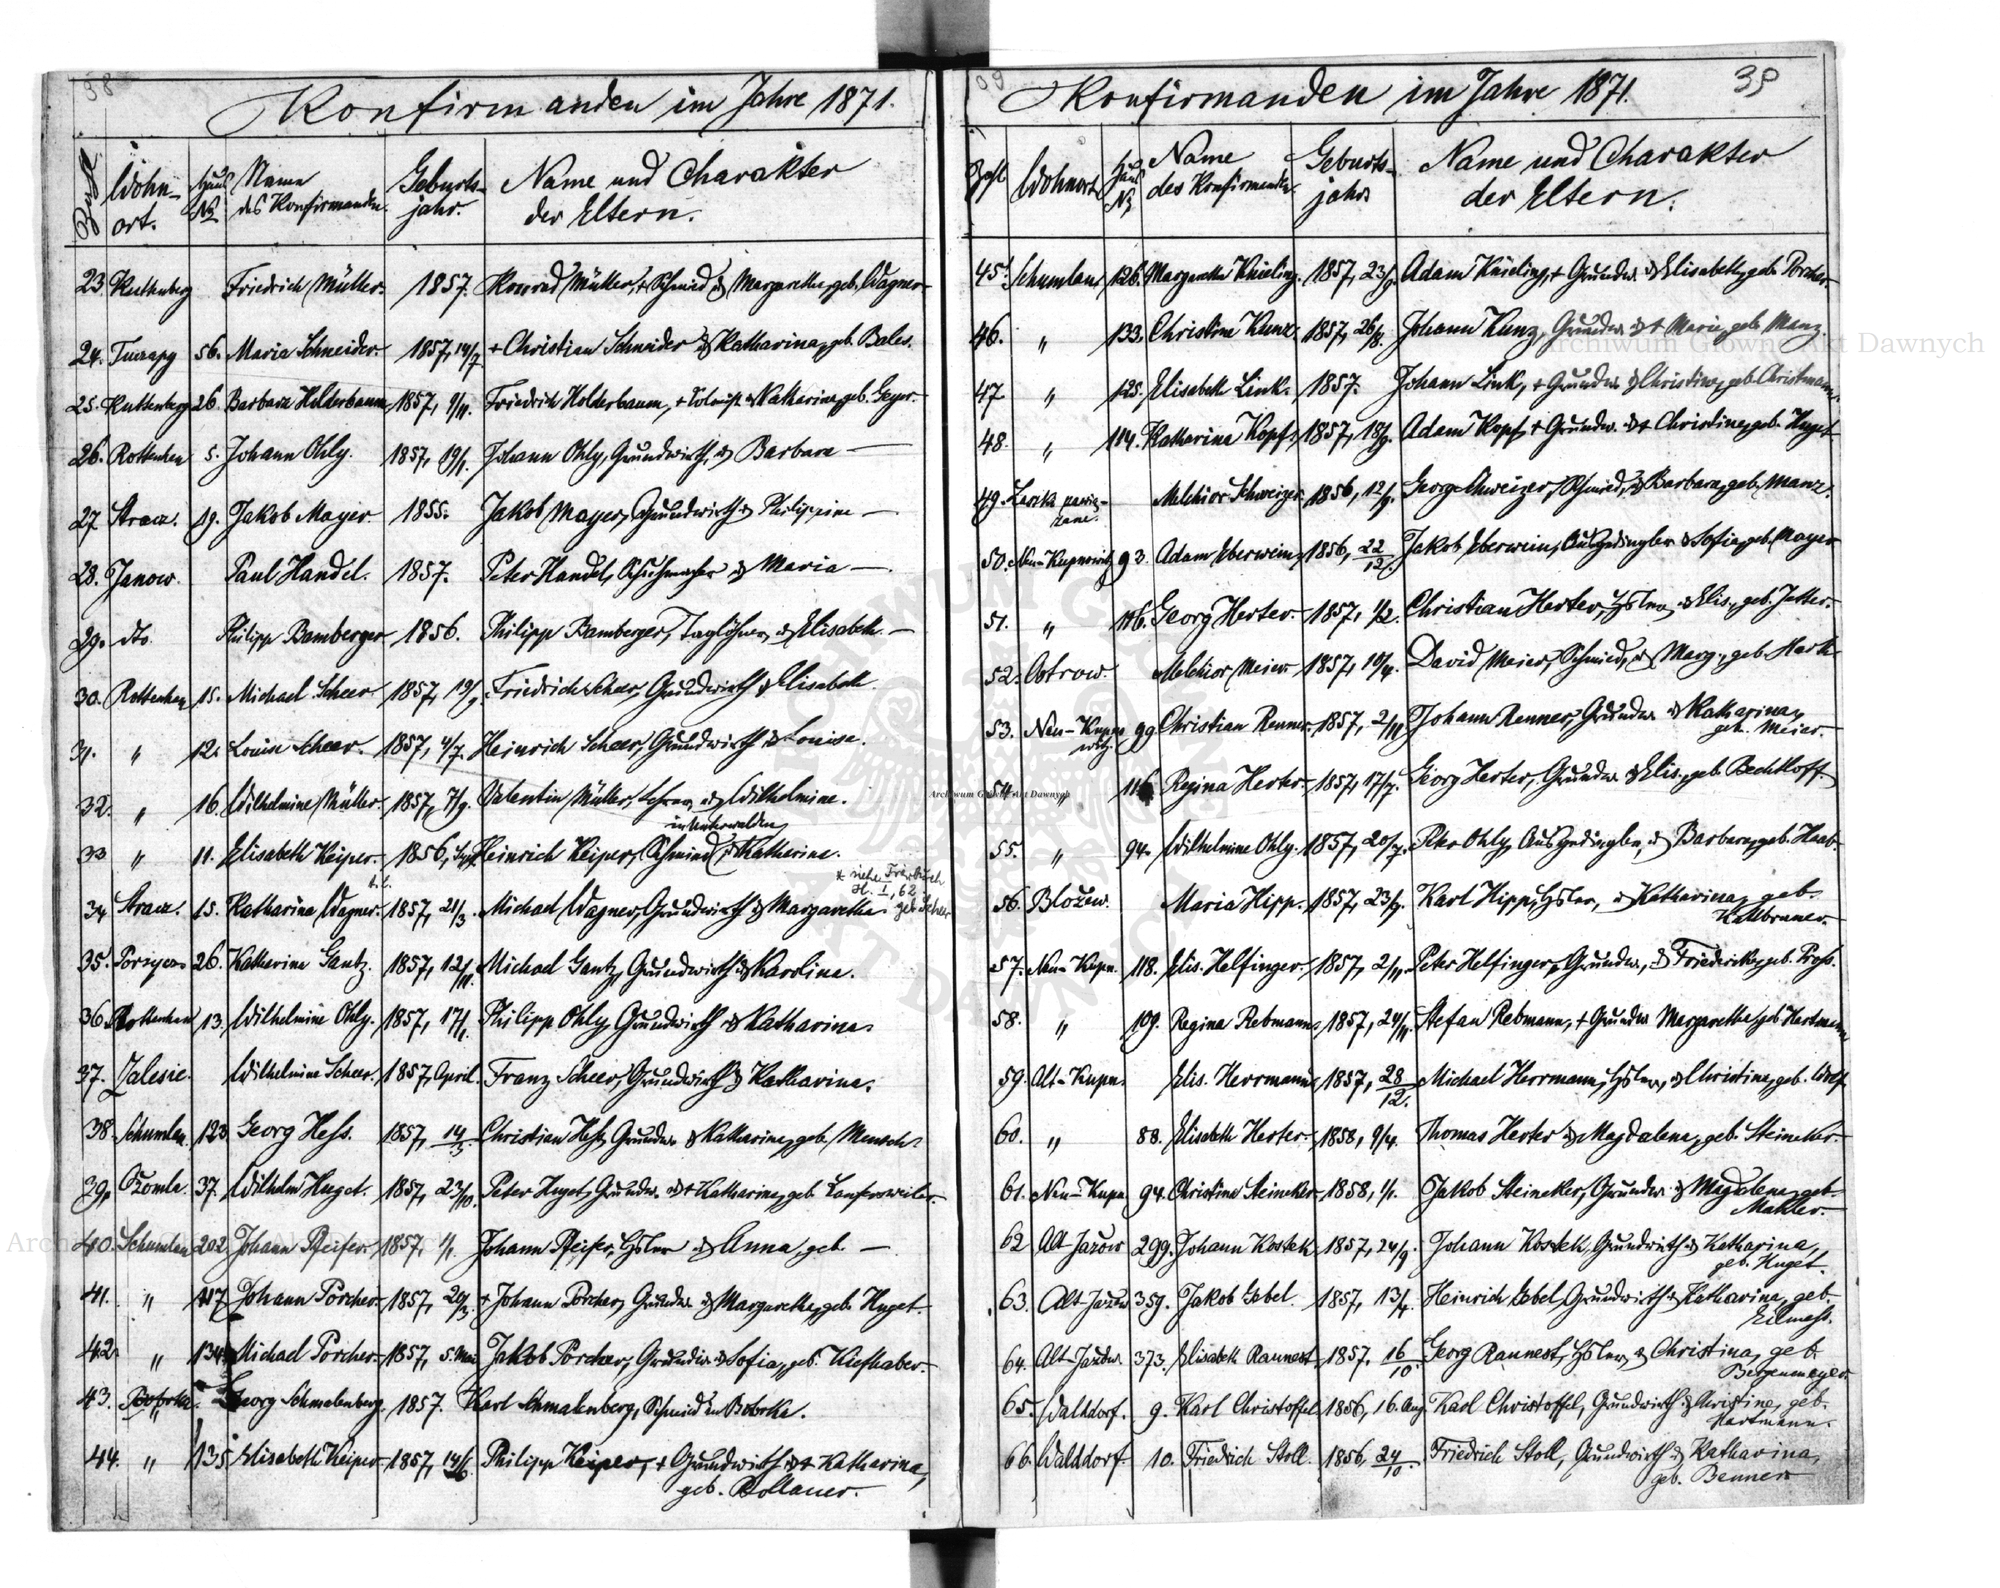 38
Konfirmanden im Jahre 1871.
Zahl Wohn-ort. Haus № Name des Konfirmanden. Geburts-jahr. Name und Charakter der Eltern.
23 Kuttenberg Friedrich Müller. 1857. Konrad Müller, + Schmied & Margarethe, geb. Wagner
24. Tuczapy 56. Maria Schneider. 1857, 14/7. + Christian Schneider & Katharina, geb. Bales.
25. Kuttenberg 26. Barbara Holderbaum, 1857, 9/11. Friedrich Holderbaum, + Colonist & Katharina, geb. Geyer.
26. Rottenhan 5. Johann Ohly. 1857, 19/1. Johann Ohly, Grundwirth, & Barbara —
27 Aracz. 19. Jakob Mayer. 1855. Jakob Mayer, Grundwirth & Philippine —
28. Janow. Paul Handel. 1857. Peter Handel, Schuhmacher & Maria —.
29. dto. Philipp Bamberger 1856. Philipp Bamberger, Taglöhner, & Elisabeth. —
30. Rottenhan 15. Michael Scheer 1857, 19/9. Friedrich Scheer, Grundwirth & Elisabeth.
31. " 12. Louise Scheer. 1857, 4/7. Heinrich Scheer, Grundwirth & Louise.
32. " 16. Wilhelmine Müller. 1857, 7/9. Valentin Müller, Lehrer, & Wilhelmine.
in Unterwalden
33 " 11. Elisabeth Keiper. 1856, Heinrich Keiper, Schmied & Katharina.
* siehe Trarbuch
H. I, 62.
34 Aracz. 15. Katharina Wagner. 1857, 21/3. Michael Wagner, Grundwirth & Margaretha geb.
35. 26. Katharina Gantz. 1857, 12/11. Michael Gantz, Grundwirth & Karolina.
36. Rottenhan 13. Wilhelmine Ohly. 1857, 17/1. Philipp Ohly, Grundwirth & Katharina.
37. Zalesie. Wilhelmine Scheer. 1857, April. Franz Scheer, Grundwirth & Katharina.
38. Schumlau 123 Georg Hess. 1857, 14/3 Christian Hess, Grundw. & Katharina, geb. Mensch.
39. Ozomla. 37. Wilhelm Huget. 1857, 23/10. Peter Huget, Grundw. & + Katharina, geb. Laufersweiler.
40. Schumlau 202. Johann Pfeifer 1857, 1/1. Johann Pfeifer, Hsler & Anna, geb. —
41. " 117 Johann Porcher 1857, 20/3. + Johann Porcher, Grundw. & Margarethe, geb. Huget.
42. " 134 Michael Porcher 1857, 5. Mai Jakob Porcher, Grundw. & Sofia, geb. Kiefhaber.
43. Bobrka. Georg Schmalenberg 1857. Karl Schmalenberg, Schmied in Bobrka.
44. " 135. Elisabeth Keiper 1857, 14/6. Philipp Keiper, + Grundwirth & + Katharina,
geb. Bollauer.
39
39
Konfirmanden im Jahre 1871.
Zahl Wohnort Haus № Name des Konfirmanden. Geburts-jahr Name und Charakter der Eltern.
45. Schumlau 126. Margaretha Knieling. 1857, 23/9. Adam Knieling, + Grundw. & Elisabeth, geb. Porcher.
46. " 133. Christina Kunz. 1857, 26/8. Johann Kunz, Grundw. & + Marie, geb. Manz.
47. " 125. Elisabeth Link. 1857. Johann Link, + Grundw. & Christine, geb. Christmann.
48. " 114. Katharina Kopf, 1857, 18/9. Adam Kopf, + Grundw. & + Christine, geb. Huget
49. Melchior Schweizer 1856, 12/9. Georg Schweizer, Schmied, & Barbara, geb. Manz.
50. Neu-Kupnowitz 93. Adam Eberwein, 1856, 22/12. Jakob Eberwein, Ausgedingler & Sofia, geb. Mayer
51. " 116. Georg Herter. 1857, 1/2. Christian Herter, Hsler, & Elis., geb. Jetter.
52. Ostrow. Melchior Meier 1857, 10/4. David Meier, Schmied, & Marg., geb. Hark
53. Neu-Kupnowitz 99 Christian Renner 1857, 2/11 Johann Renner, Grundw. & Katharina,
geb. Meier.
54. " 116 Regina Herter. 1857, 17/7. Georg Herter, Grundw. & Elis., geb. Bechtloff.
55. " 94. Wilhelmine Ohly. 1857, 20/7. Peter Ohly, Ausgedingler, & Barbara, geb. Haab.
56. Blozew. Maria Hipp. 1857, 23/9. Karl Hipp, Hsler, & Katharina, geb.
Kaltbruner.
57. Neu-Kupn. 118. Elis. Helfinger. 1857, 2/11. Peter Helfinger, Grundw., & Friederike, geb. Pross.
58. " 109. Regina Rebmann, 1857, 24/11. Stefan Rebmann, + Grundw. Margaretha, geb. Hartmann
59. Alt-Kupn. Elis. Herrmann 1857, 28/12. Michael Herrmann, Hsler, & Christina, geb. Wolf.
60. " 88. Elisabeth Herter. 1858, 9/4. Thomas Herter & Magdalena, geb. Steineker.
61. Neu-Kupn. 94. Christina Steineker 1858, 1/1. Jakob Steineker, Grundw. & Magdalena, geb.
Makler.
62 Alt Jazow 299. Johann Kostek 1857, 24/9. Johann Kostek, Grundwirth & Katharina,
geb. Huget.
63. Alt-Jazow 359. Jakob Gebel. 1857, 13/4. Heinrich Gebel, Grundwirth & Katharina, geb.
Eilmess.
64. Alt-Jazow 373. Elisabeth Raunest 1857. 16/10. Georg Raunest, Hsler, & Christina, geb.
Bergenmeyer
65. Walddorf. 9. Karl Christoffel 1856, 16. Aug. Karl Christoffel, Grundwirth & Christine, geb.
Hartmann.
66. Walddorf. 10. Friedrich Stoll. 1856, 24/10. Friedrich Stoll, Grundwirth & Katharina,
geb. Benner
Archiwum Główne Akt Dawnych